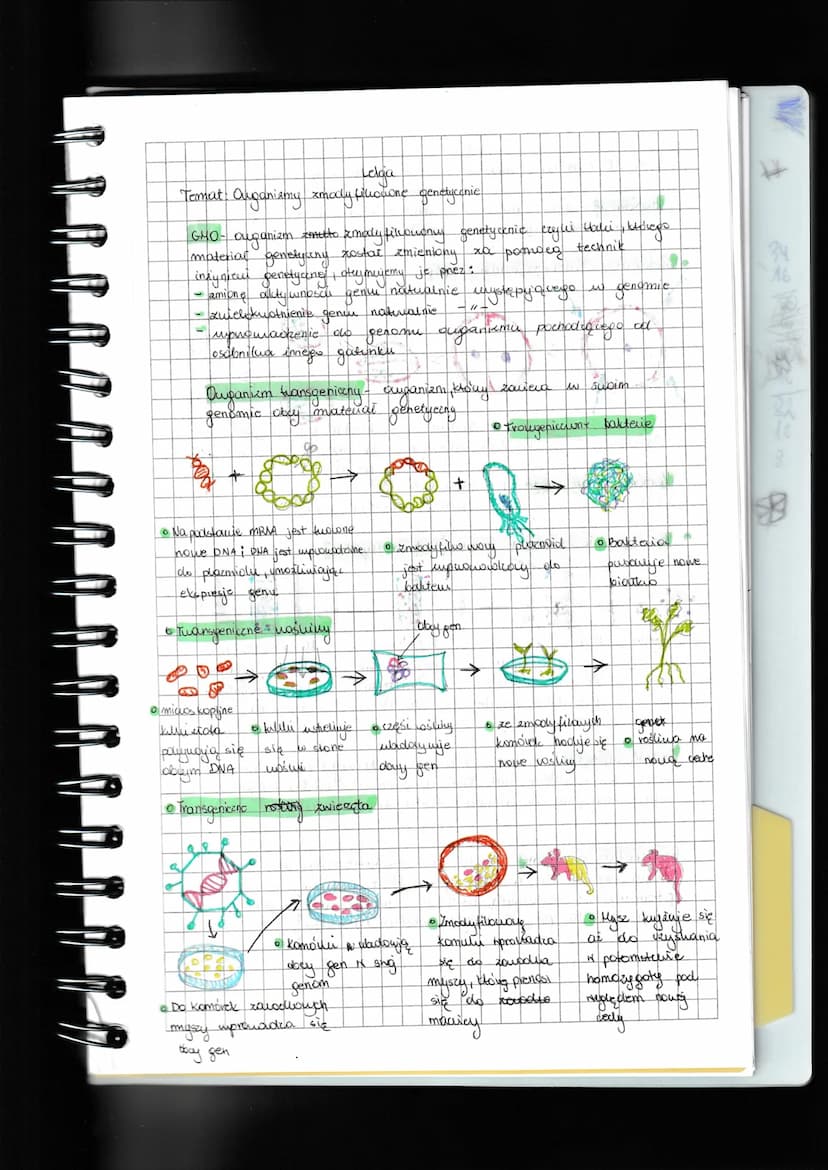 Lekcja
Temat: Organizmy zmodyfikowane genetycznie
GMO - organizm zmodyfikowany genetycznie czyli taki, którego
materiał genetyczny został zmieniony za pomocą technik
inżynierii genetycznej, otrzymujemy je przez:
- zmianę aktywności genu naturalnie występującego w genomie
- zwielokrotnienie genu naturalnie -"-
- wprowadzenie do genomu organizmu pochodzącego od
osobnika innego gatunku
Organizm transgeniczny - organizm, który zawiera w swoim
genomie obcy materiał genetyczny
Transgeniczne bakterie
Na podstawie mRNA jest tworzone
nowe DNA i DNA jest wprowadzane
do plazmidu, umożliwiając
ekspresję genu
Zmodyfikowany plazmid
jest wprowadzony do
bakterii
Bakteria
produkuje nowe
białko
Transgeniczne rośliny
obcy gen
mikroskopijne
złota
pokrywają się
obcym DNA
kulki wstrzeliwuje
się w
rośliny
część rośliny
wbudowuje
obcy gen
ze zmodyfikowanych
komórek hoduje się
nowe rośliny
roślina ma
nową cechę
Transgeniczne rośliny zwierzęta
Komórki wbudowują
obcy gen w swój
genom
Do komórek zarodkowych
myszy wprowadza się
obcy gen
Zmodyfikowane
komórki wprowadza
się do zarodka
myszy, który przenosi
się do zarodka
macicy
Mysz krzyżuje się
aż do uzyskania
w potomstwie
homozygoty pod
względem nowej
cechy